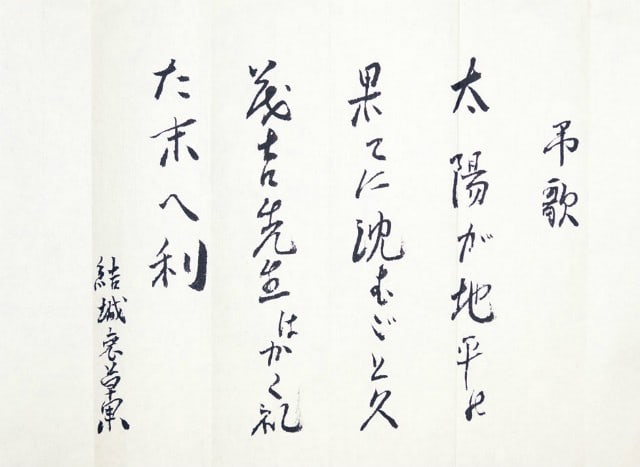 弔歌
太陽が地平の
果てに沈むごと久
茂吉先生はかく礼
た末へ利
結城哀草果